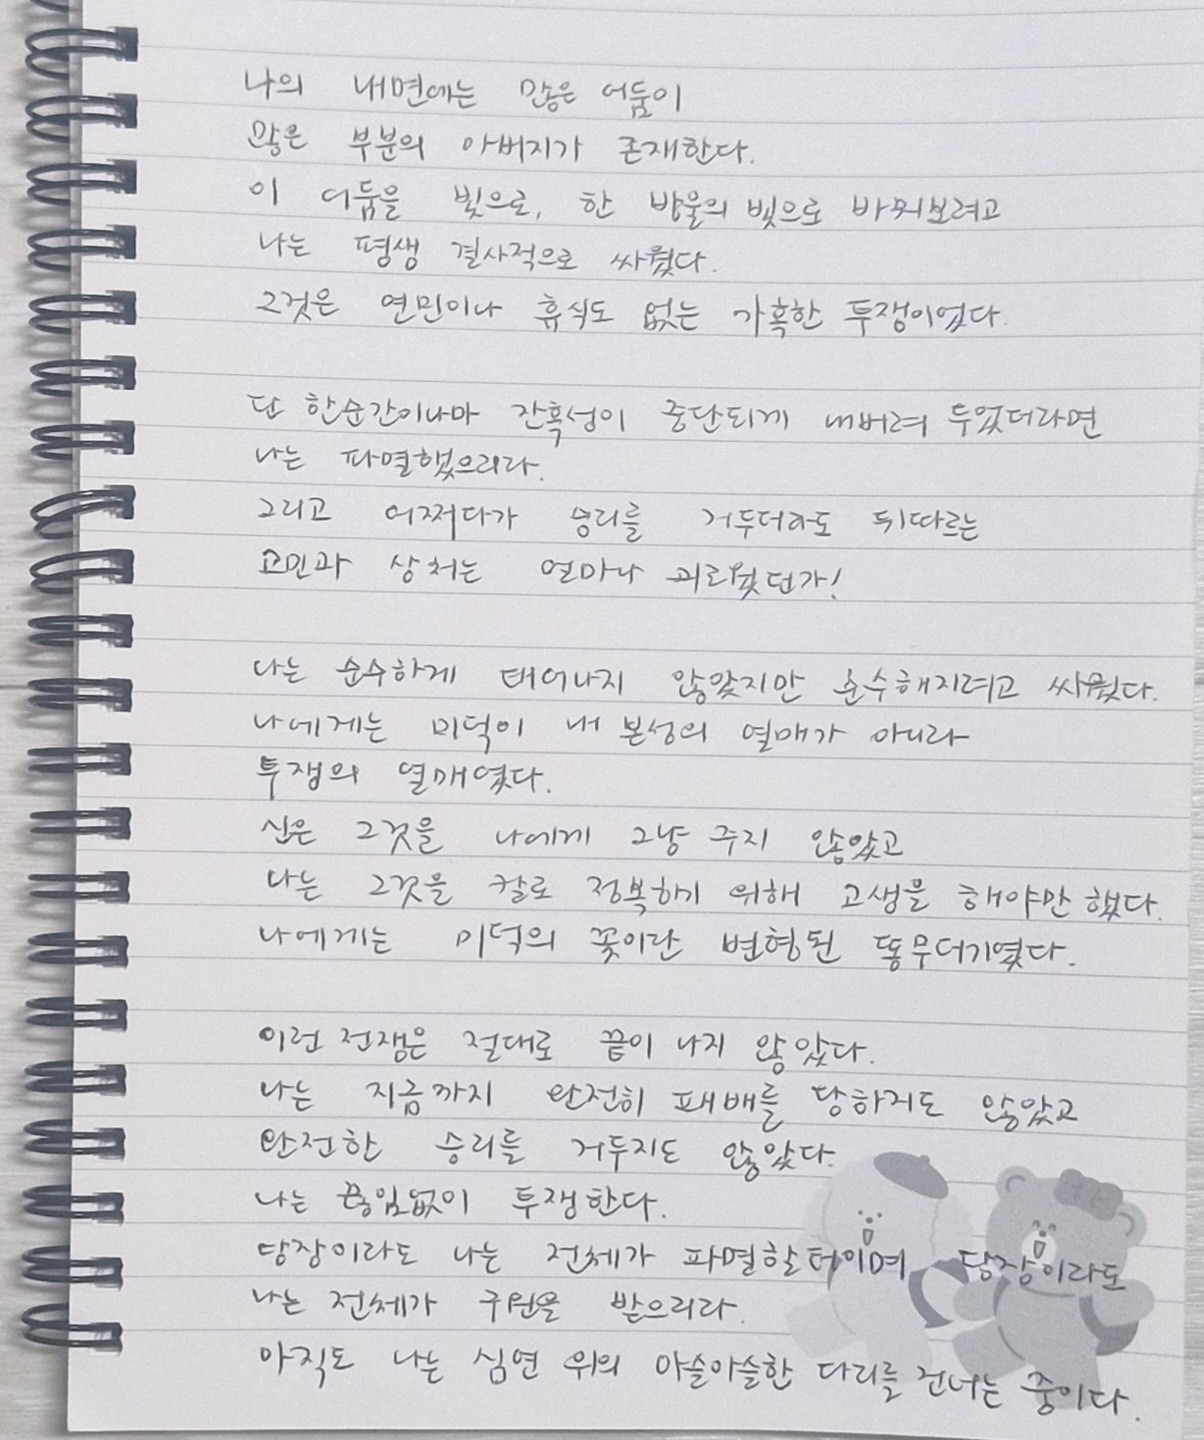 나의 내면에는 많은 어둠이
많은 부분의 아버지가 존재한다.
이 어둠을 빛으로, 한 방울의 빛으로 바꿔보려고
나는 평생 결사적으로 싸웠다.
그것은 연민이나 휴식도 없는 가혹한 투쟁이었다.
단 한순간이나마 잔혹성이 중단되게 내버려 두었더라면
나는 파멸했으리라.
그리고 어쩌다가 승리를 거두더라도 뒤따르는
고민과 상처는 얼마나 괴로웠던가!
나는 순수하게 태어나지 않았지만 순수해지려고 싸웠다.
나에게는 미덕이 내 본성의 열매가 아니라
투쟁의 열매였다.
신은 그것을 나에게 그냥 주지 않았고
나는 그것을 칼로 정복하기 위해 고생을 해야만 했다.
나에게는 미덕의 꽃이란 변형된 똥무더기였다.
이런 전쟁은 절대로 끝이 나지 않았다.
나는 지금까지 완전히 패배를 당하지도 않았고
완전한 승리를 거두지도 않았다.
나는 끊임없이 투쟁한다.
당장이라도 나는 전체가 파멸할터이며 당장이라도
나는 전체가 구원을 받으리라.
아직도 나는 심연 위의 아슬아슬한 다리를 건너는 중이다.